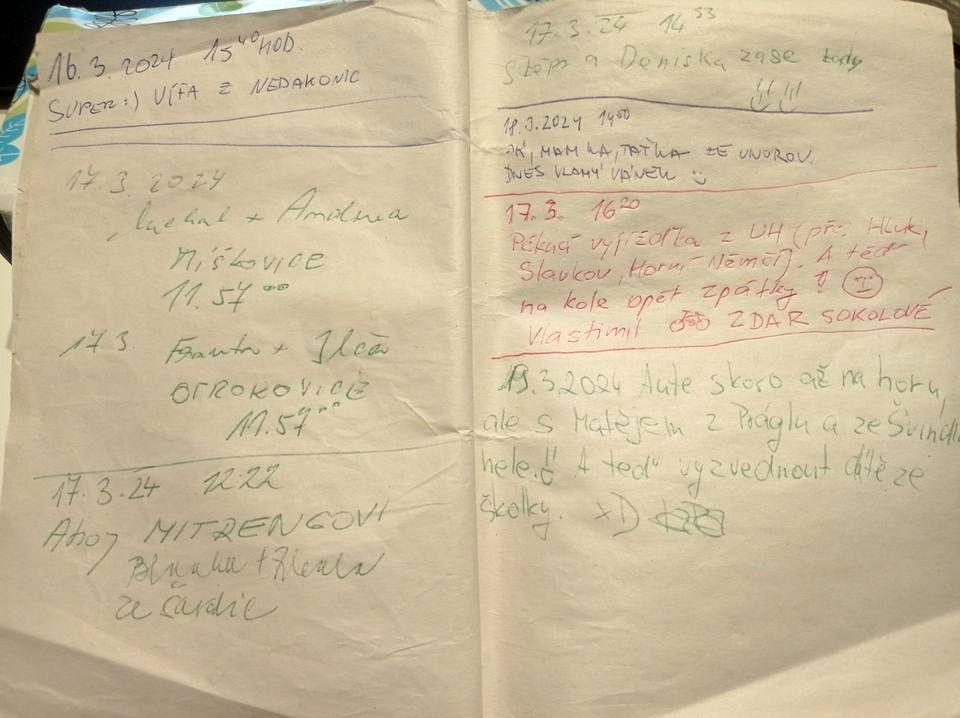 16.3.2024 15⁴⁰ HOD.
SUPER :) VÍŤA Z NEDAKONIC
17.3. 2024
Michal + Andrea
MÍŠKOVICE
11.57
17.3. Franta +
OTROKOVICE
11.57
17.3.24 12:22
Ahoj MITRENGOVI
ze Šardic
17.3.24 14⁵³
Štěpa a Deniska zase tady
18.3.2024 14⁰⁰
JÁ, MAMKA, TAŤKA ZE VNOROV.
DNES VLAHÝ VÁNEK
17.3. 16²⁰
Pěkná vyjížďka z UH (přes Hluk,
Slavkov, Horní Němčí). A teď
na kole opět zpátky!
Vlastimil ZDAR SOKOLOVÉ
19.3.2024 Aute skoro až na horu,
ale s Matějem z Práglu a ze Švindl
hele.. A teď vyzvednout dítě ze
školky. XD